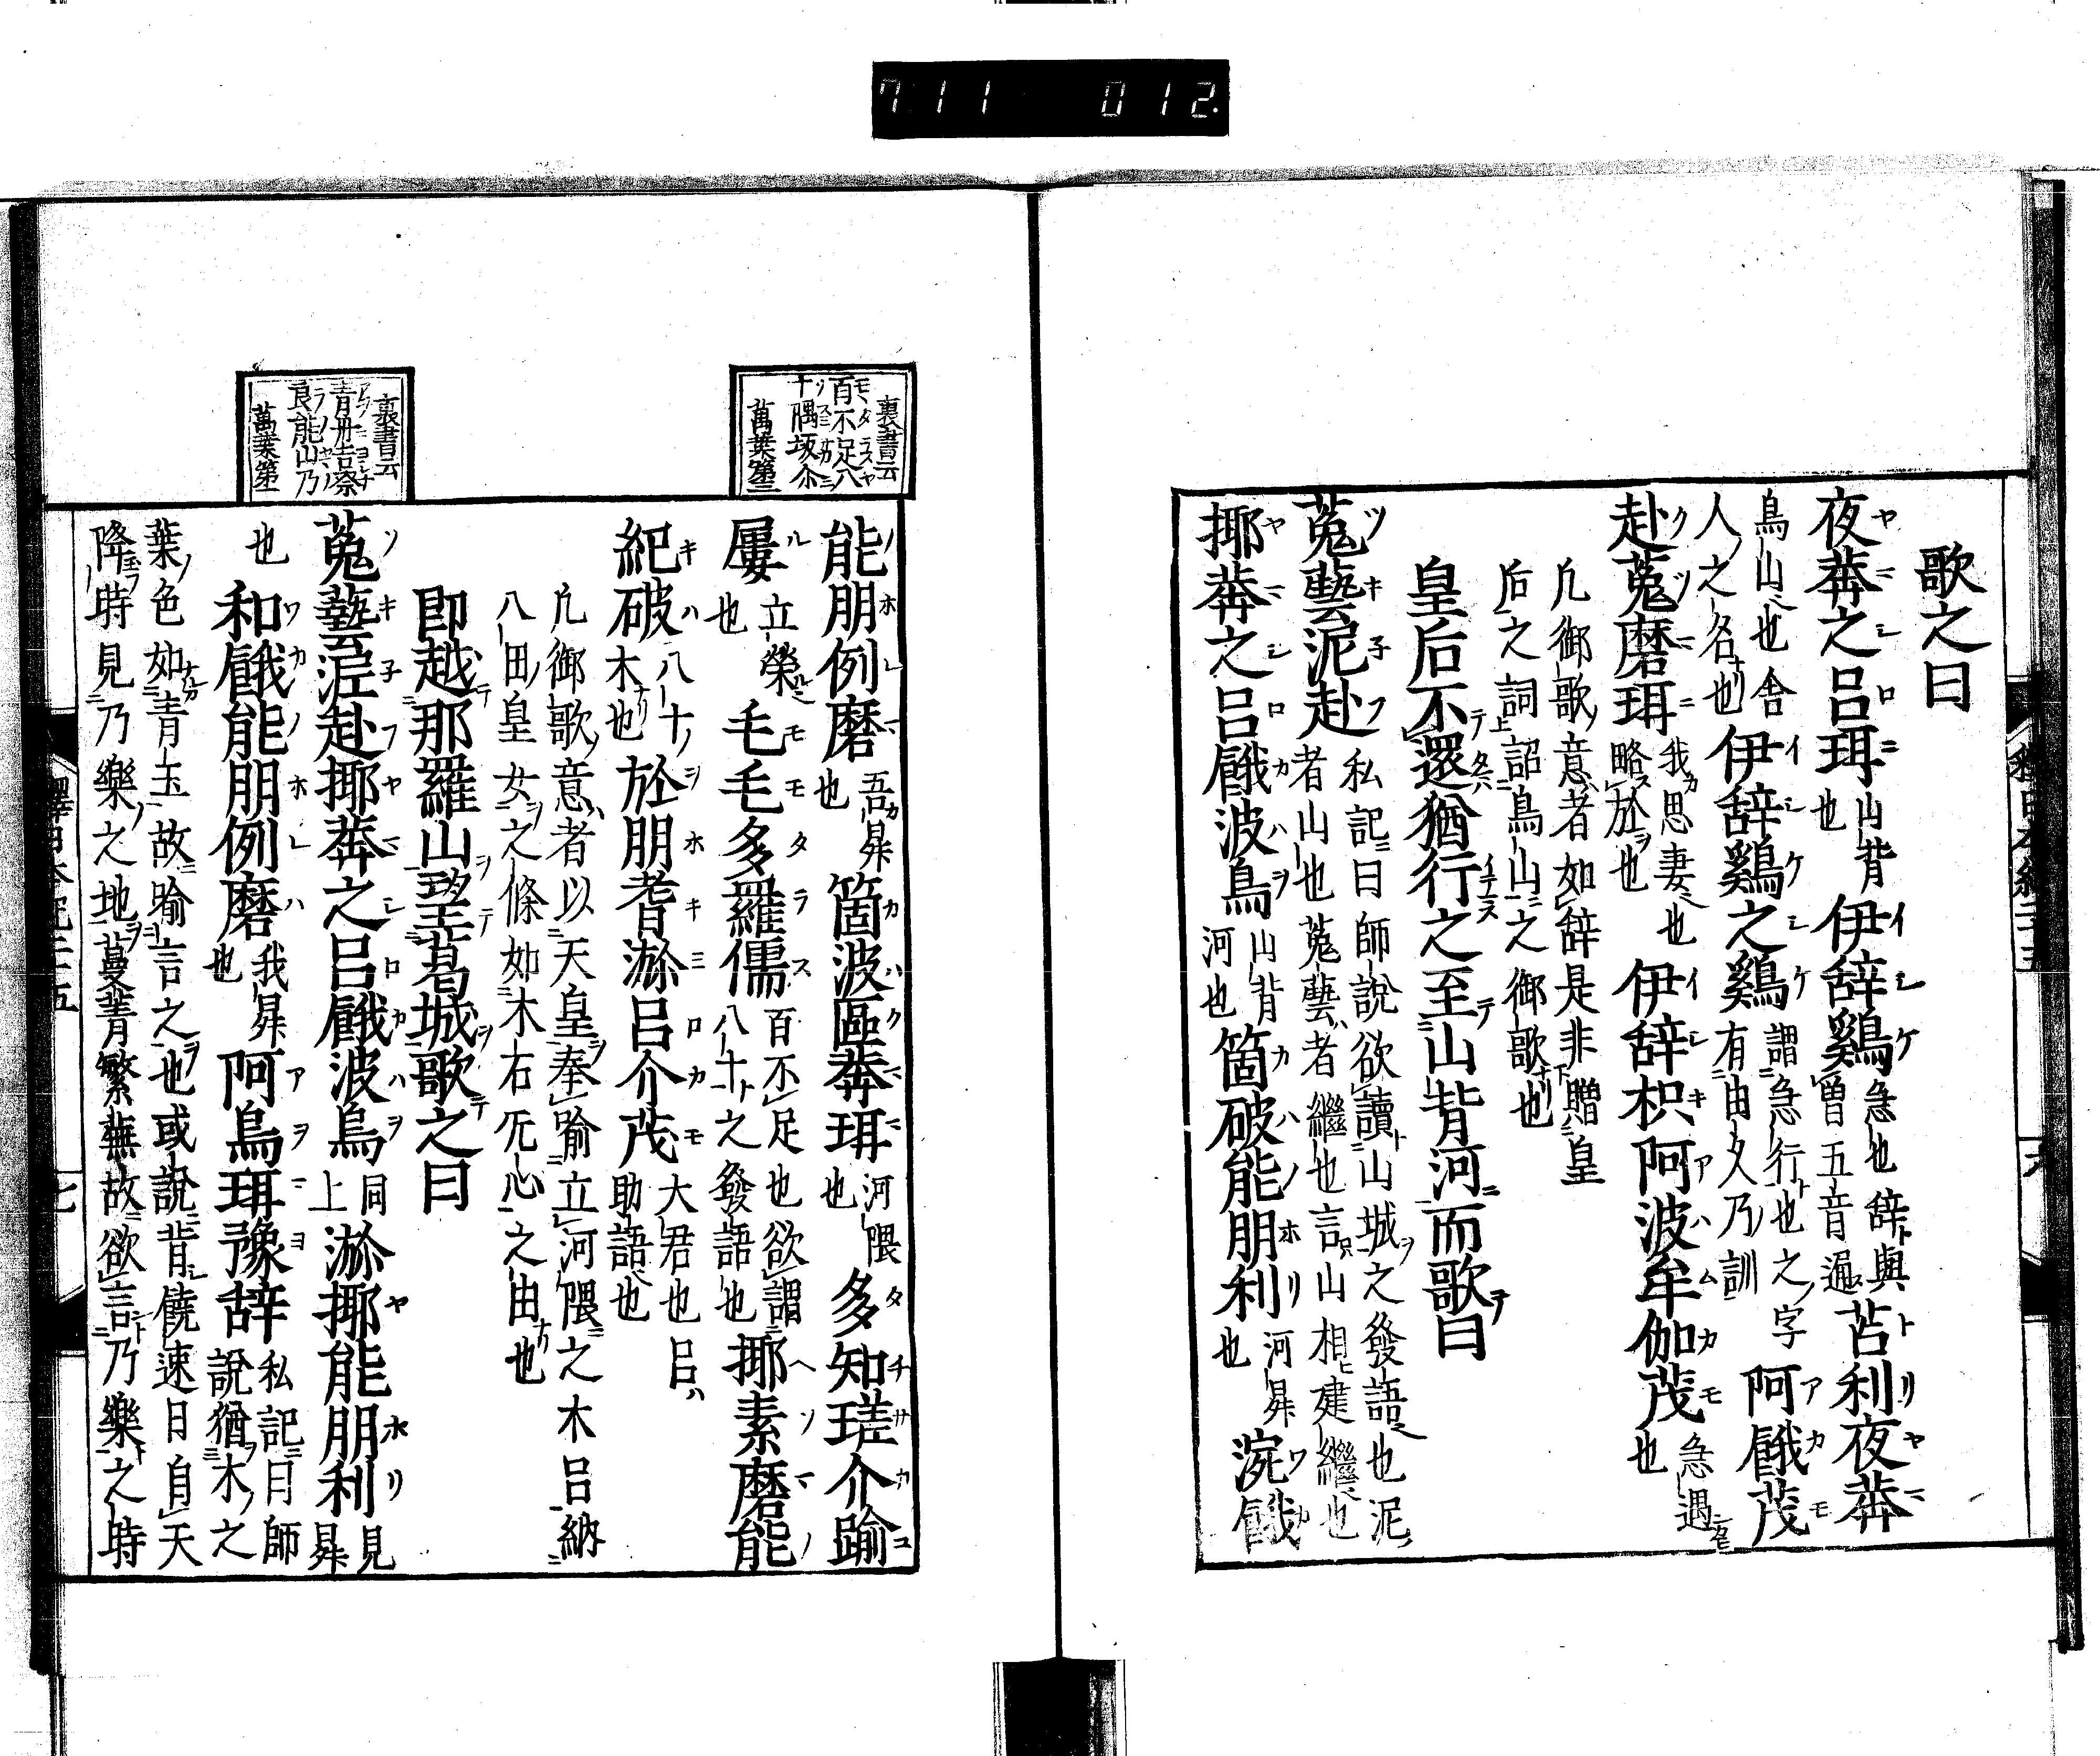 7 11 012.
歌之曰
夜莾之呂珥山背也伊辞鷄急也辞與曽五音通苫利夜莾
鳥山也舎人之名也伊辞鷄之鷄謂急行也之字有由乂乃訓阿餓茂
赴菟磨珥我思妻也略於也伊辞枳阿波牟伽茂急遇也
凡御歌意者如辞是非贈皇
后之詞詔鳥山之御歌也
皇后不還猶行之至山背河而歌曰
菟藝泥赴私記曰師說欲讀山城之發語也泥者山也菟藝者繼也言山相建繼也
揶莾之呂餓波烏山背河也箇破能朋利河昇也涴餓
能朋例磨吾昇也箇波區莾珥河隈也多知瑳介踰
屢立榮也毛毛多羅儒百不足也欲謂八十之發語也揶素磨能
紀破八十木也於朋耆瀰呂介茂大君也呂助語也
凡御歌意者以天皇奉喻立河隈之木呂納
八田皇女之條如木右旡心之由也
即越那羅山望葛城歌之曰
菟藝泥赴揶莾之呂餓波烏同上瀰揶能朋利見昇
也和餓能朋例磨我昇也阿烏珥豫辞私記曰師說猶木之
葉色如青玉故喻言之也或說背饒速日自天
降時見乃樂之地蔓菁繁蕪故欲言乃樂之時
裏書云
百不足八
十隅坂尒
萬葉第三
裏書云
青丹吉奈
良能山乃
萬葉第一
七